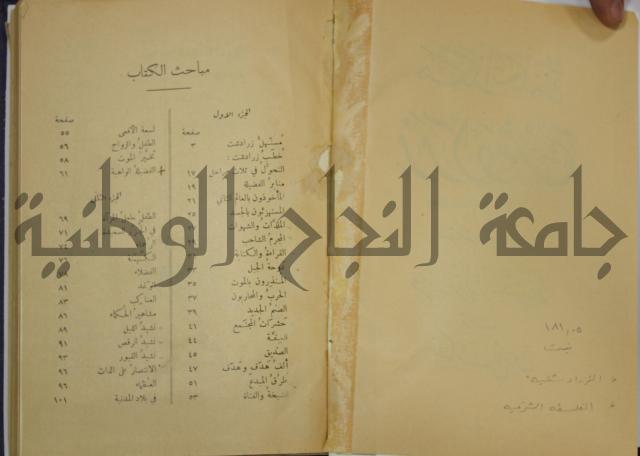 مباحث الكتاب
الجزء الاول
صفحة
مستهل زرادشت ٣
خطب زرادشت :
التحول في ثلاث مراحل ١٧
منابر الفضيلة ١٩
المأخوذون بالعالم الثاني ٢١
المستهزئون بالجسد
الملذات والشهوات
المجرم الشاحب
القراءة والكتابة
دوحة الجبل
المنذرون بالموت ٣٥
الحرب والمحاربون ٣٧
الصنم الجديد ٣٩
حشرات المجتمع ٤١
العفة ٤٤
الصديق ٤٥
ألف هدف وهدف ٤٧
طرق المبدع ٥١
الشيخة والفتاة ٥٣
صفحة
لسعة الأفعى ٥٥
الطفل والزواج ٥٦
تخير الموت ٥٨
الفضيلة الواهبة ٦١
الجزء الثاني
الطفل ٦٩
في ٧١
الفضلاء
٨١
العناكب ٨٣
مشاهير الحكماء ٨٦
نشيد الليل ٨٩
نشيد الرقص ٩١
نشيد القبور ٩٣
الانتصار على الذات ٩٦
العظماء ٩٦
في بلاد المدنية ١٠١
جامعة النجاح الوطنية
١٨١,٠٥
الفلسفة الشرقية